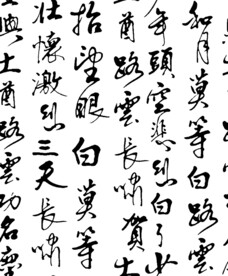 和月莫等白路雲
年頭空悲烈白了少
土酋路雲長嘯賀土
抬望眼白莫等
壯懷激烈三天長嘯
土酋路雲功名塵